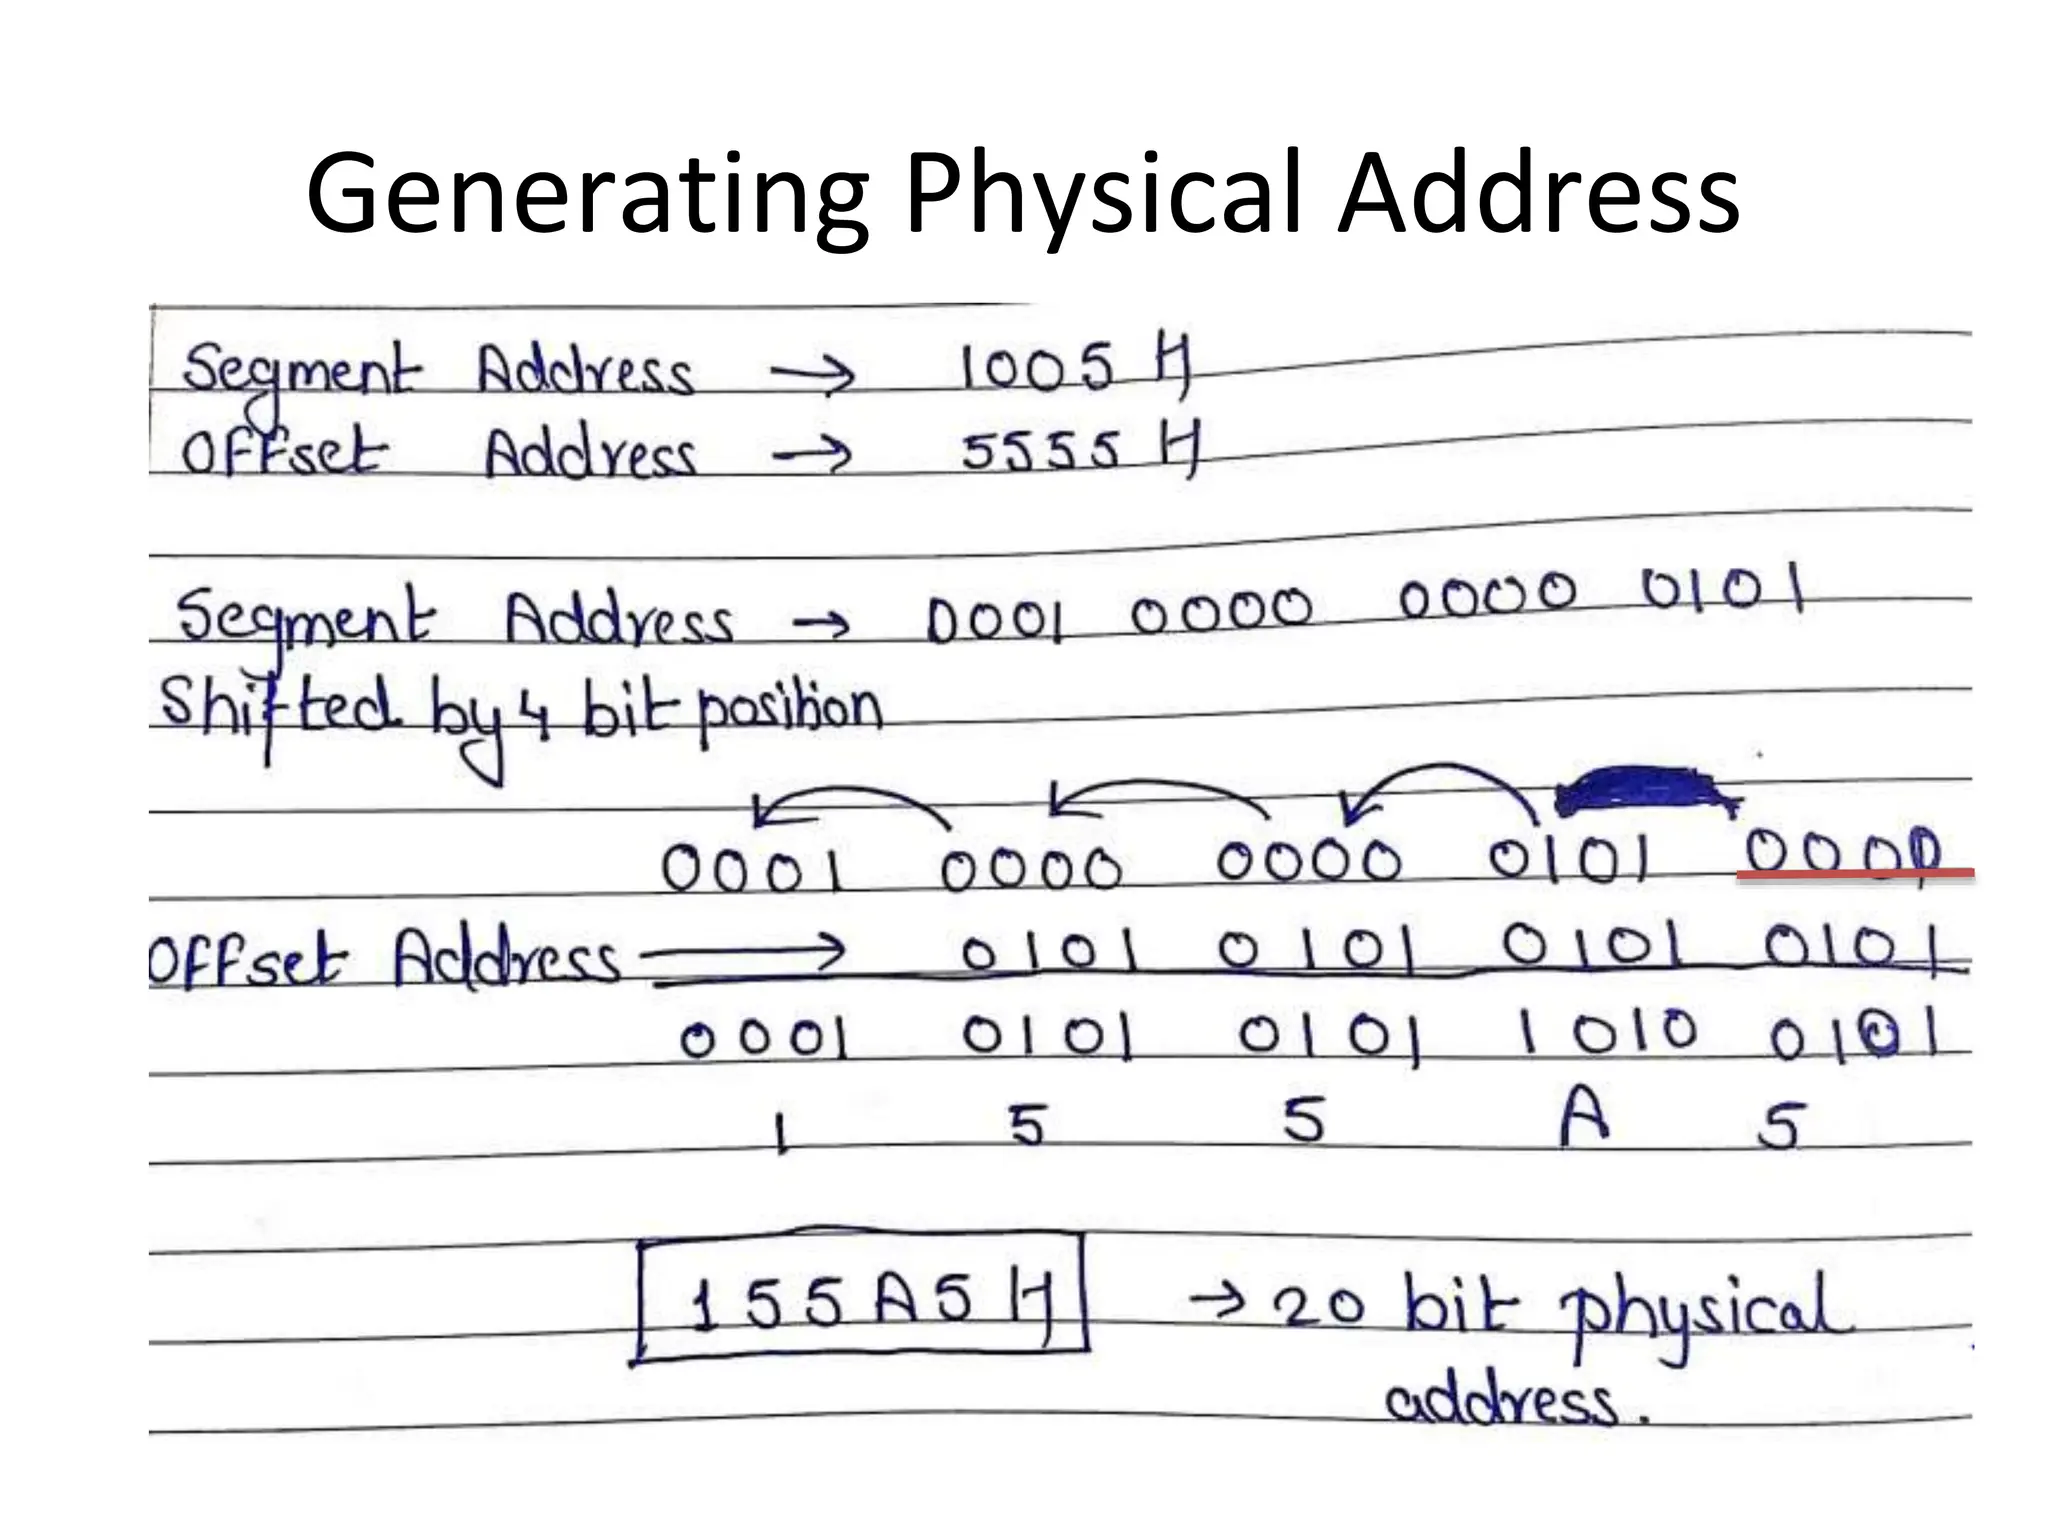 Generating Physical Address
Segment Address → 1005 H
Offset Address → 5555 H
Segment Address → 0001 0000 0000 0101
Shifted by 4 bit position
0001 0000 0000 0101 0000
Offset Address → 0101 0101 0101 0101
0001 0101 0101 1010 0101
1 5 5 A 5
155A5H → 20 bit physical
address.